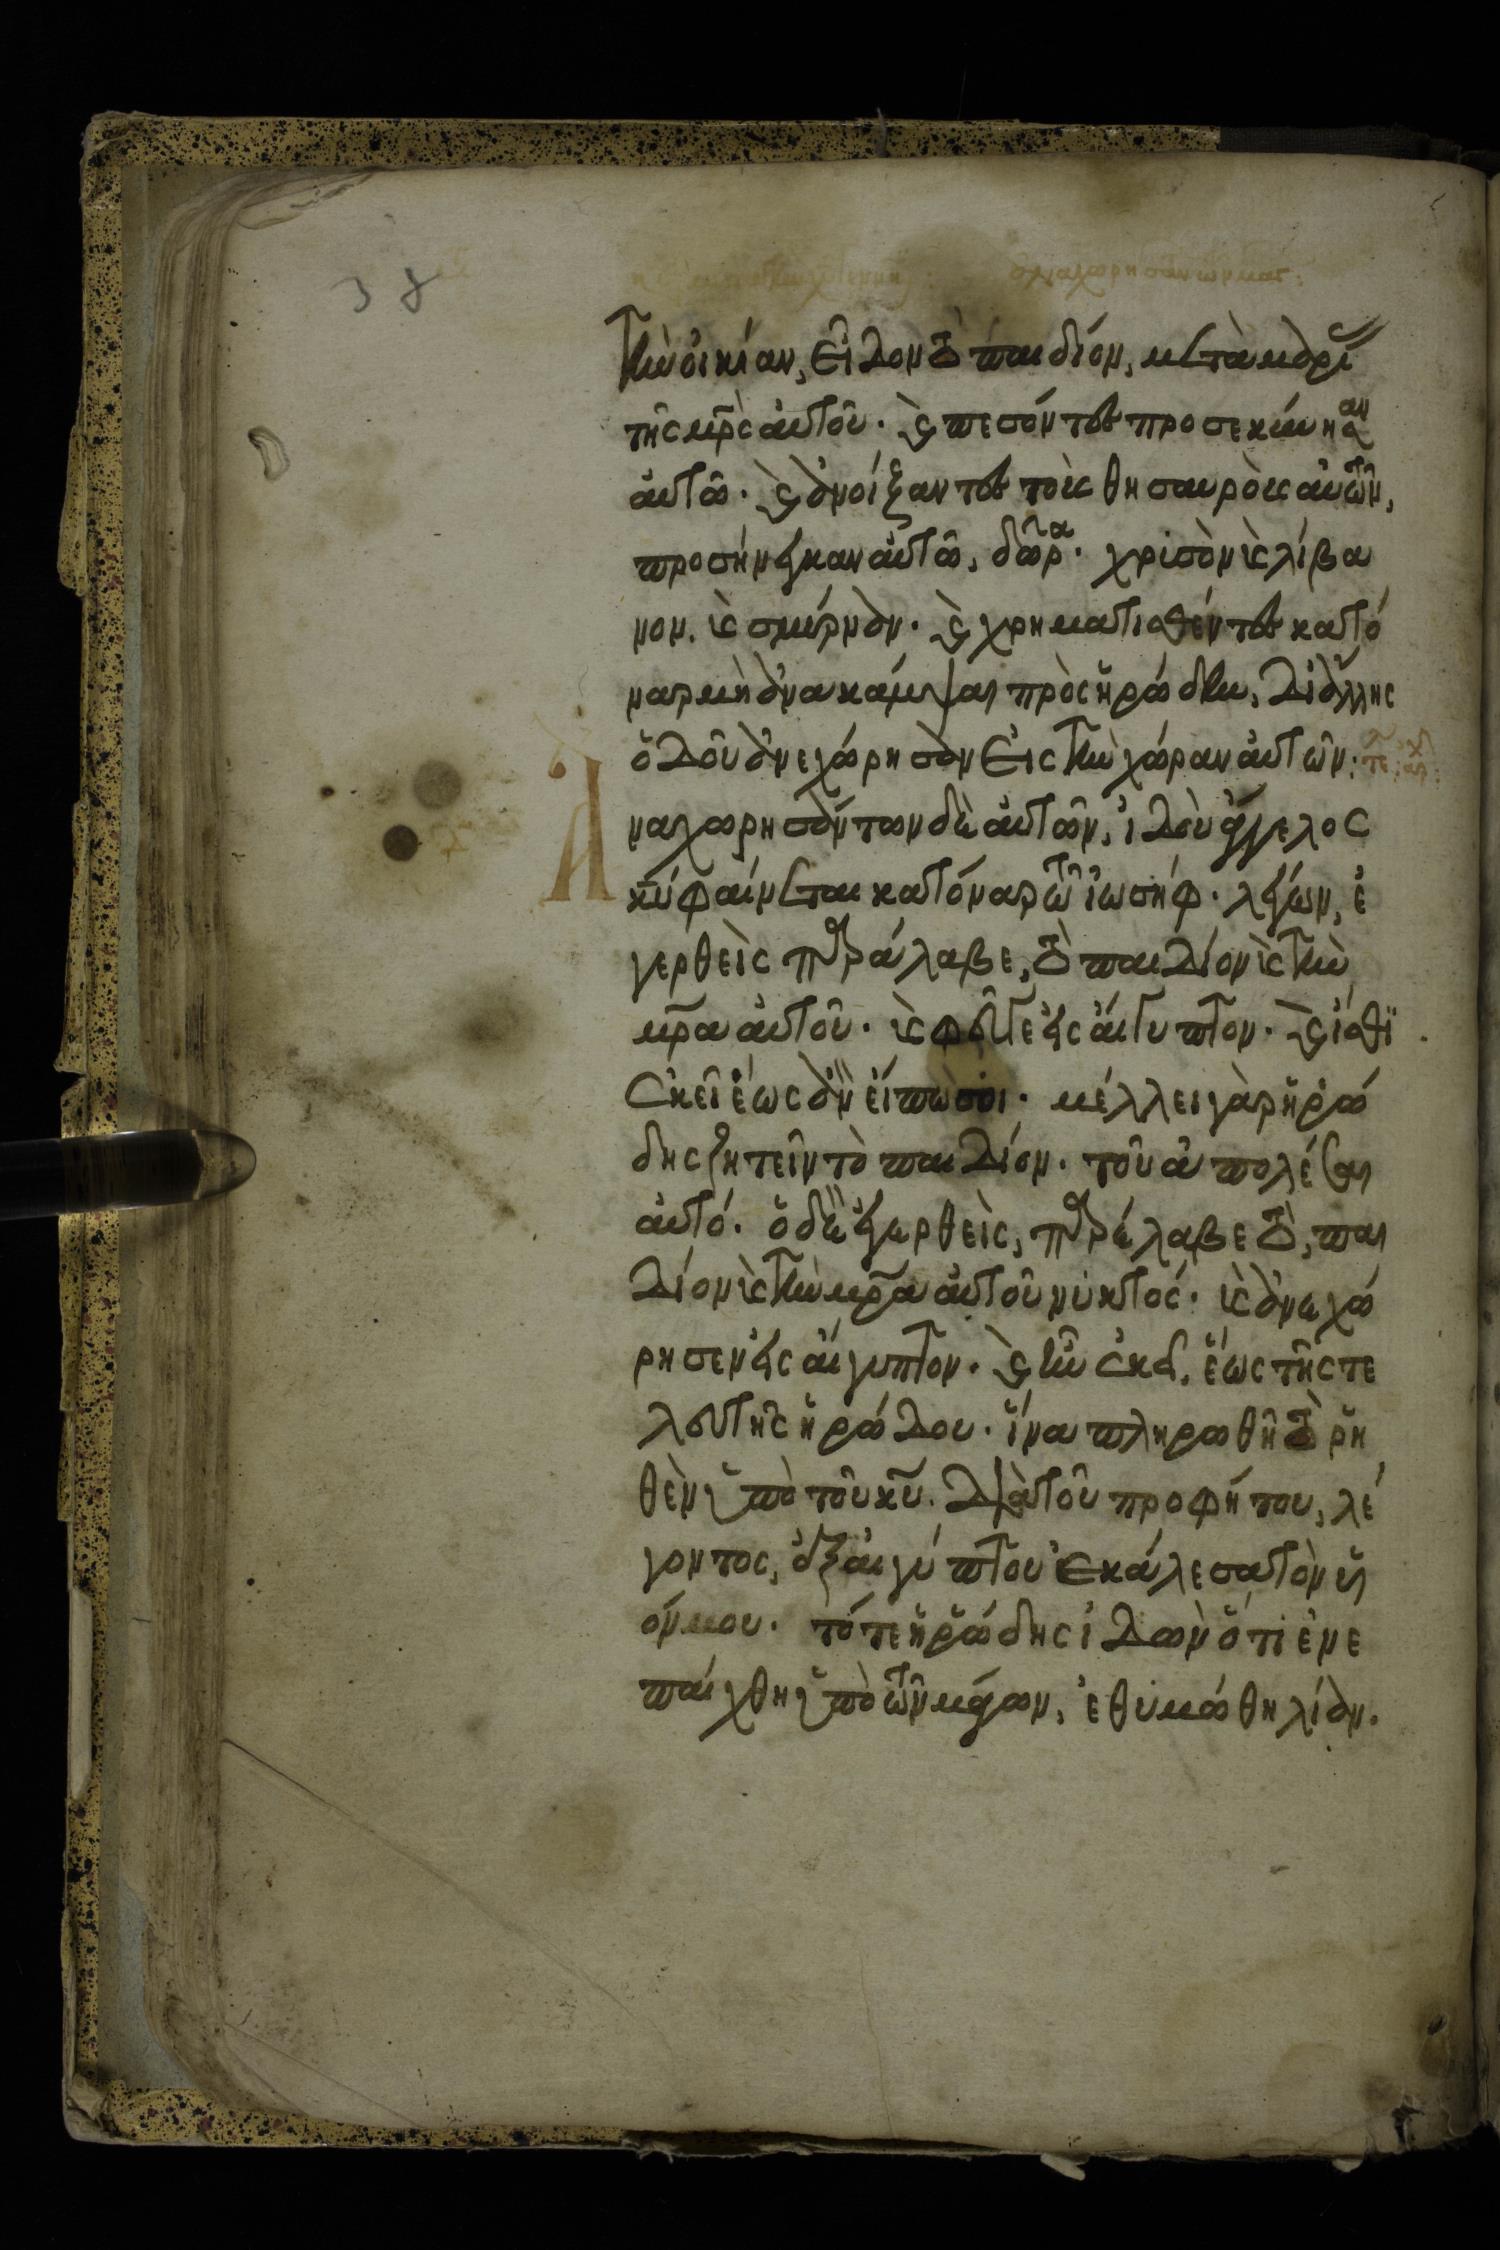 38
τὴν οἰκίαν, εἶδον τὸ παιδίον, μετὰ μαρί
τῆς μρ̅ς αὐτοῦ· καὶ πεσόντες προσεκύνησαν
αὐτῶ· καὶ ἀνοίξαντες τοὺς θησαυροὺς αὐτῶν,
προσήνεγκαν αὐτῶ, δῶρα· χρισὸν καὶ λίβα
νον. καὶ σμύρναν· καὶ χρηματισθέντες κατό
ναρ μὴ ἀνακάμψαι πρὸς ἡρώδην, δι ἄλλης
ὁδοῦ ἀνεχώρησαν εἰς τὴν χώραν αὐτῶν:
Ἀναχωρησάντων δὲ αὐτῶν, ἰδοὺ ἄγγελος
κ̅υ̅ φαίνεται κατόναρ τῶ ἰωσήφ· λέγων, ἐ
γερθεὶς παράλαβε, τὸ παιδίον καὶ τὴν
μρ̅α αὐτοῦ· καὶ φεῦγε εἰς αἴγυπτον· καὶ ἴσθϊ
ἐκεῖ ἕως ἂν εἴπω σοι· μέλλει γὰρ ἡρώ
δης ζητεῖν τὸ παιδίον· τοῦ ἀπολέσαι
αὐτό· ὁ δὲ ἐγερθεὶς, παρέλαβε τὸ, παι
δίον καὶ τὴν μρ̅α αὐτοῦ νύκτος· καὶ ἀνεχώ
ρησεν εἰς αἴγυπτον· καὶ ἦν ἐκεῖ, ἕως τῆς τε
λευτῆς ἡρώδου· ἵνα πληρωθῆ τὸ ῥη
θὲν ὑπὸ τοῦ κ̅υ̅. διὰ τοῦ προφήτου, λέ
γοντος, ἐξ αἰγύπτου ἐκάλεσα τὸν υἱ
όν μου· τότε ἡρώδης ἰδὼν ὅτι ἐνε
παίχθη ὑπὸ τῶν μάγων, ἐθυμώθη λίαν·